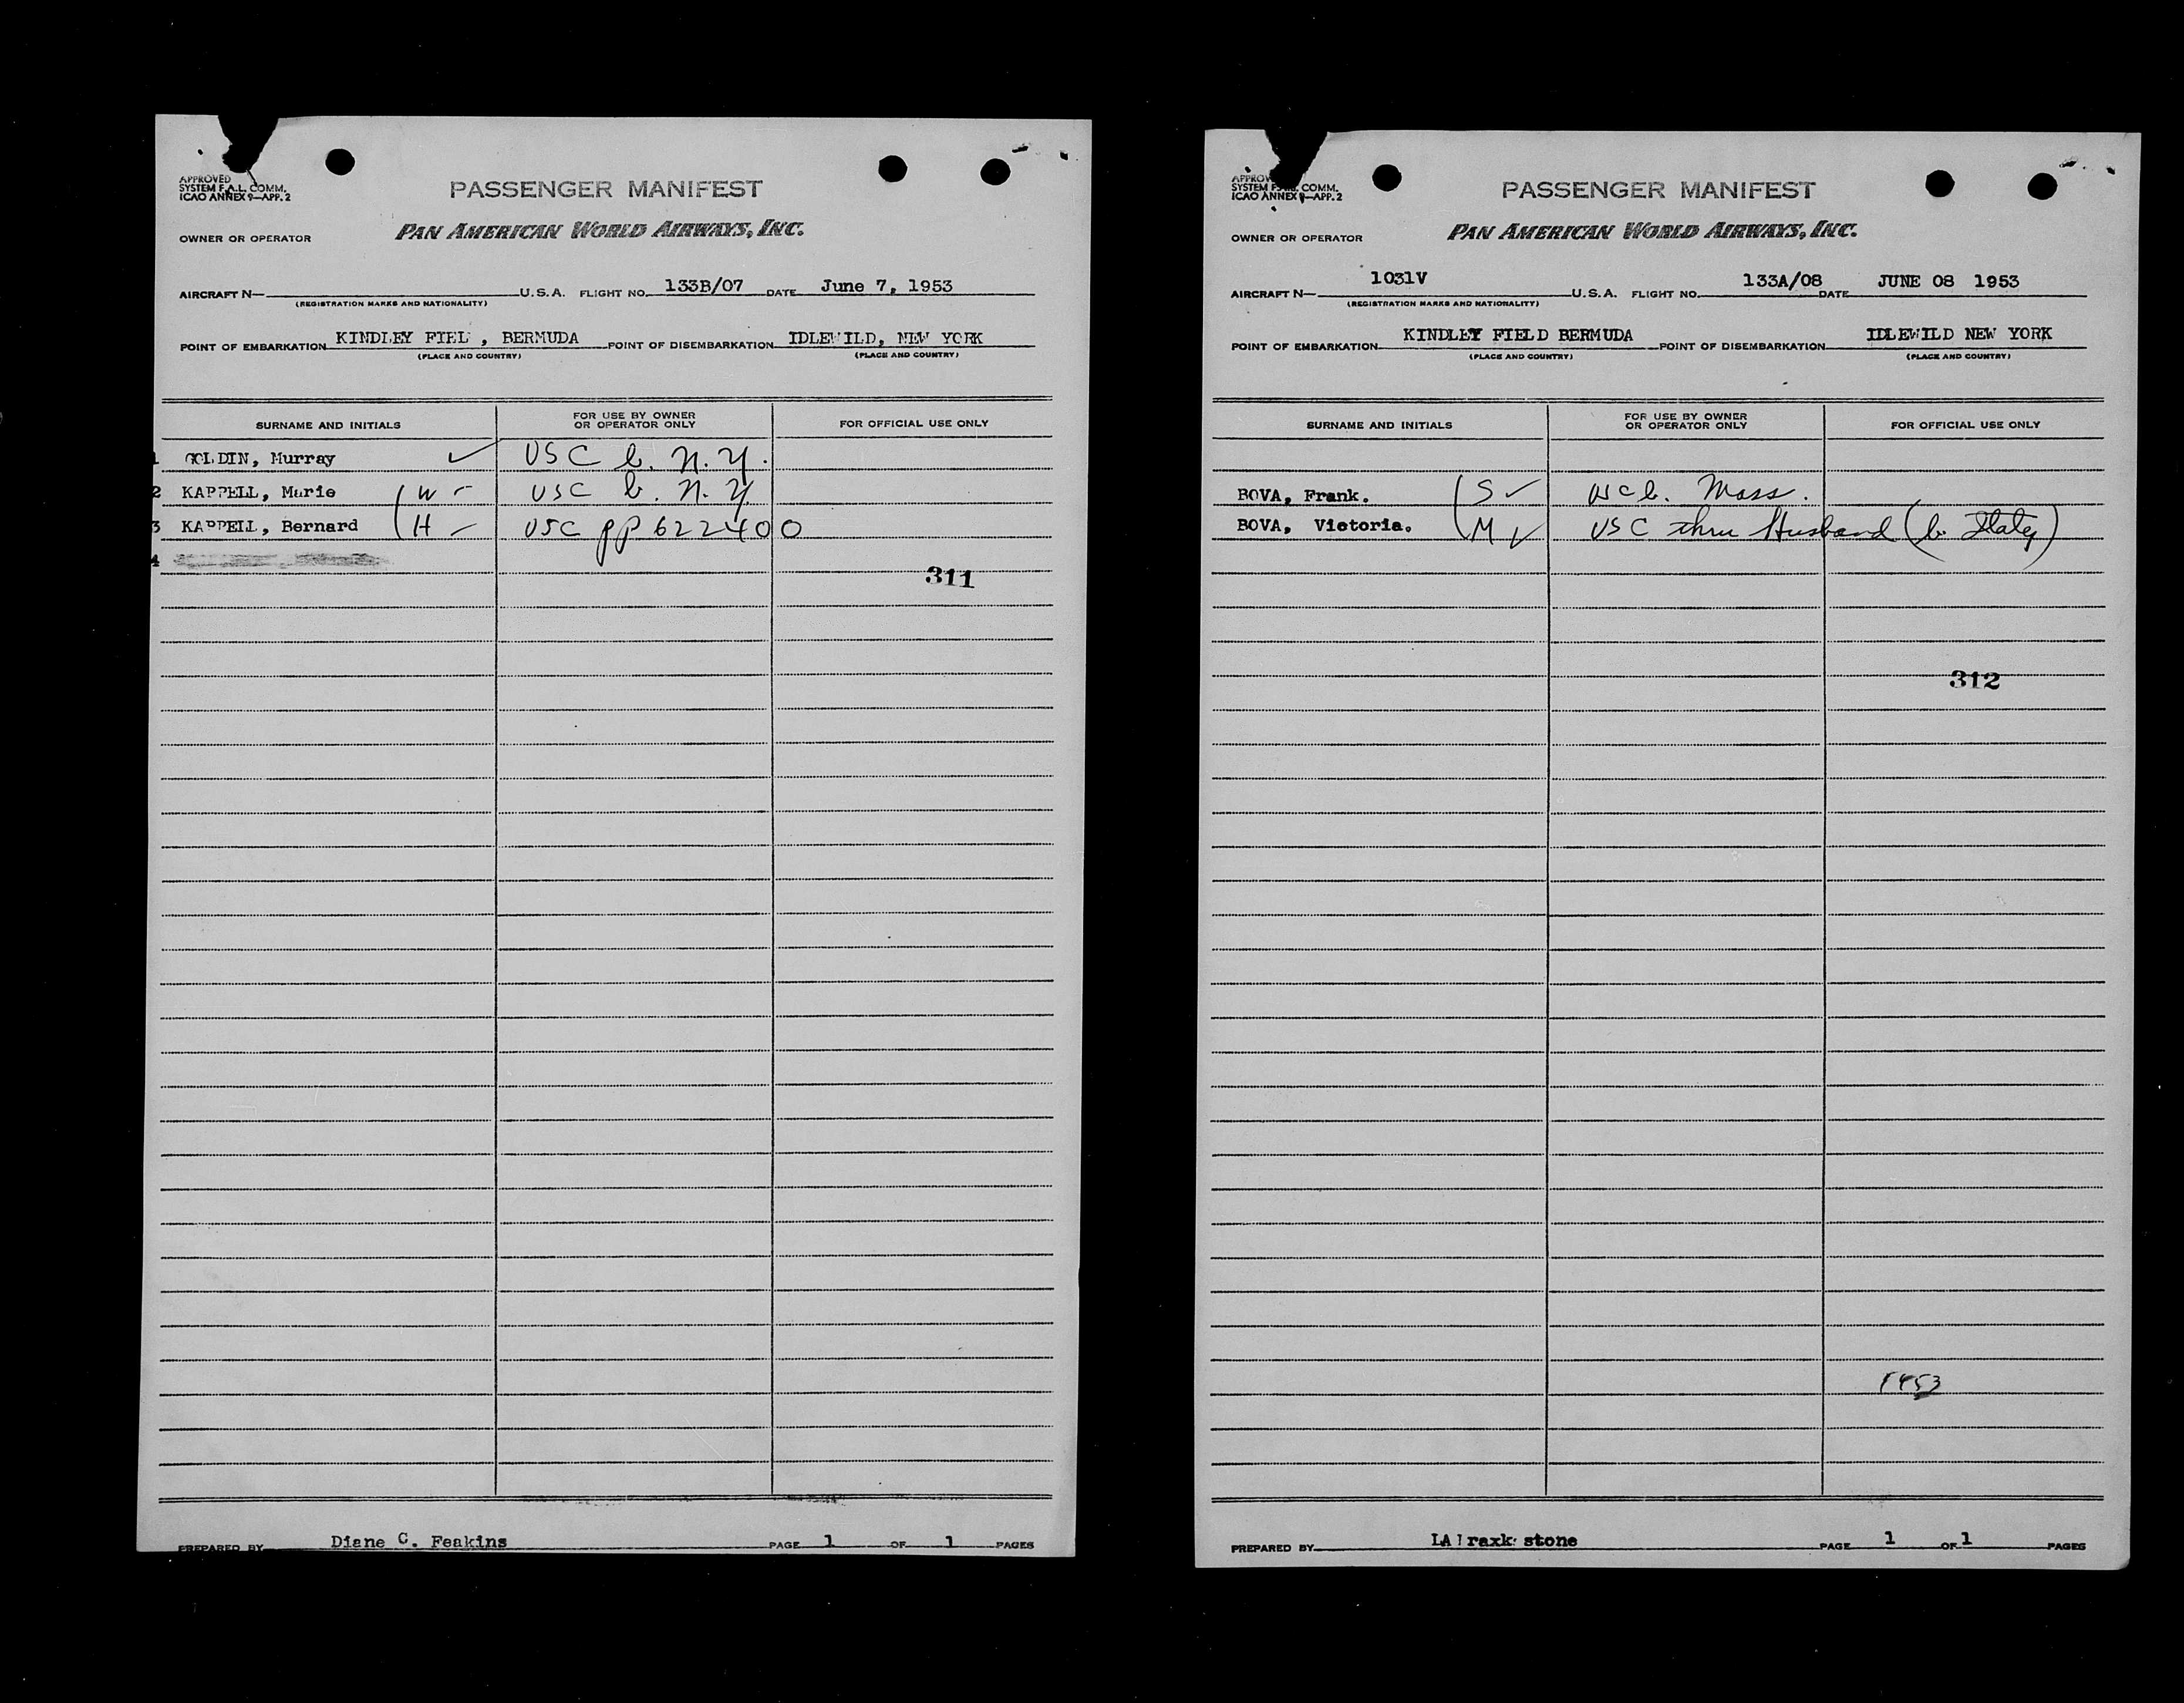 APPROVED
SYSTEM F.A.L. COMM.
ICAO ANNEX 9—APP. 2
PASSENGER MANIFEST
PAN AMERICAN WORLD AIRWAYS, INC.
OWNER OR OPERATOR
AIRCRAFT N— U.S.A. FLIGHT NO. 133B/07 DATE June 7, 1953
(REGISTRATION MARKS AND NATIONALITY)
POINT OF EMBARKATION KINDLEY FIEL , BERMUDA POINT OF DISEMBARKATION IDLEWILD, NEW YORK
(PLACE AND COUNTRY) (PLACE AND COUNTRY)
SURNAME AND INITIALS FOR USE BY OWNER OR OPERATOR ONLY FOR OFFICIAL USE ONLY
1 GOLDIN, Murray ✓ USC b. N.Y.
2 KAPPELL, Marie (W USC b. N.Y.
3 KAPPELL, Bernard (H USC pp 622400
4
311
PREPARED BY Diane C. Feakins PAGE 1 OF 1 PAGES
APPROVED
SYSTEM F.A.L. COMM.
ICAO ANNEX 9—APP. 2
PASSENGER MANIFEST
PAN AMERICAN WORLD AIRWAYS, INC.
OWNER OR OPERATOR
AIRCRAFT N— 1031V U.S.A. FLIGHT NO. 133A/08 DATE JUNE 08 1953
(REGISTRATION MARKS AND NATIONALITY)
POINT OF EMBARKATION KINDLEY FIELD BERMUDA POINT OF DISEMBARKATION IDLEWILD NEW YORK
(PLACE AND COUNTRY) (PLACE AND COUNTRY)
SURNAME AND INITIALS FOR USE BY OWNER OR OPERATOR ONLY FOR OFFICIAL USE ONLY
BOVA, Frank. (S ✓ USC b. Mass.
BOVA, Victoria. (M ✓ USC thru Husband (b. Italy)
312
PREPARED BY stone PAGE 1 OF 1 PAGES